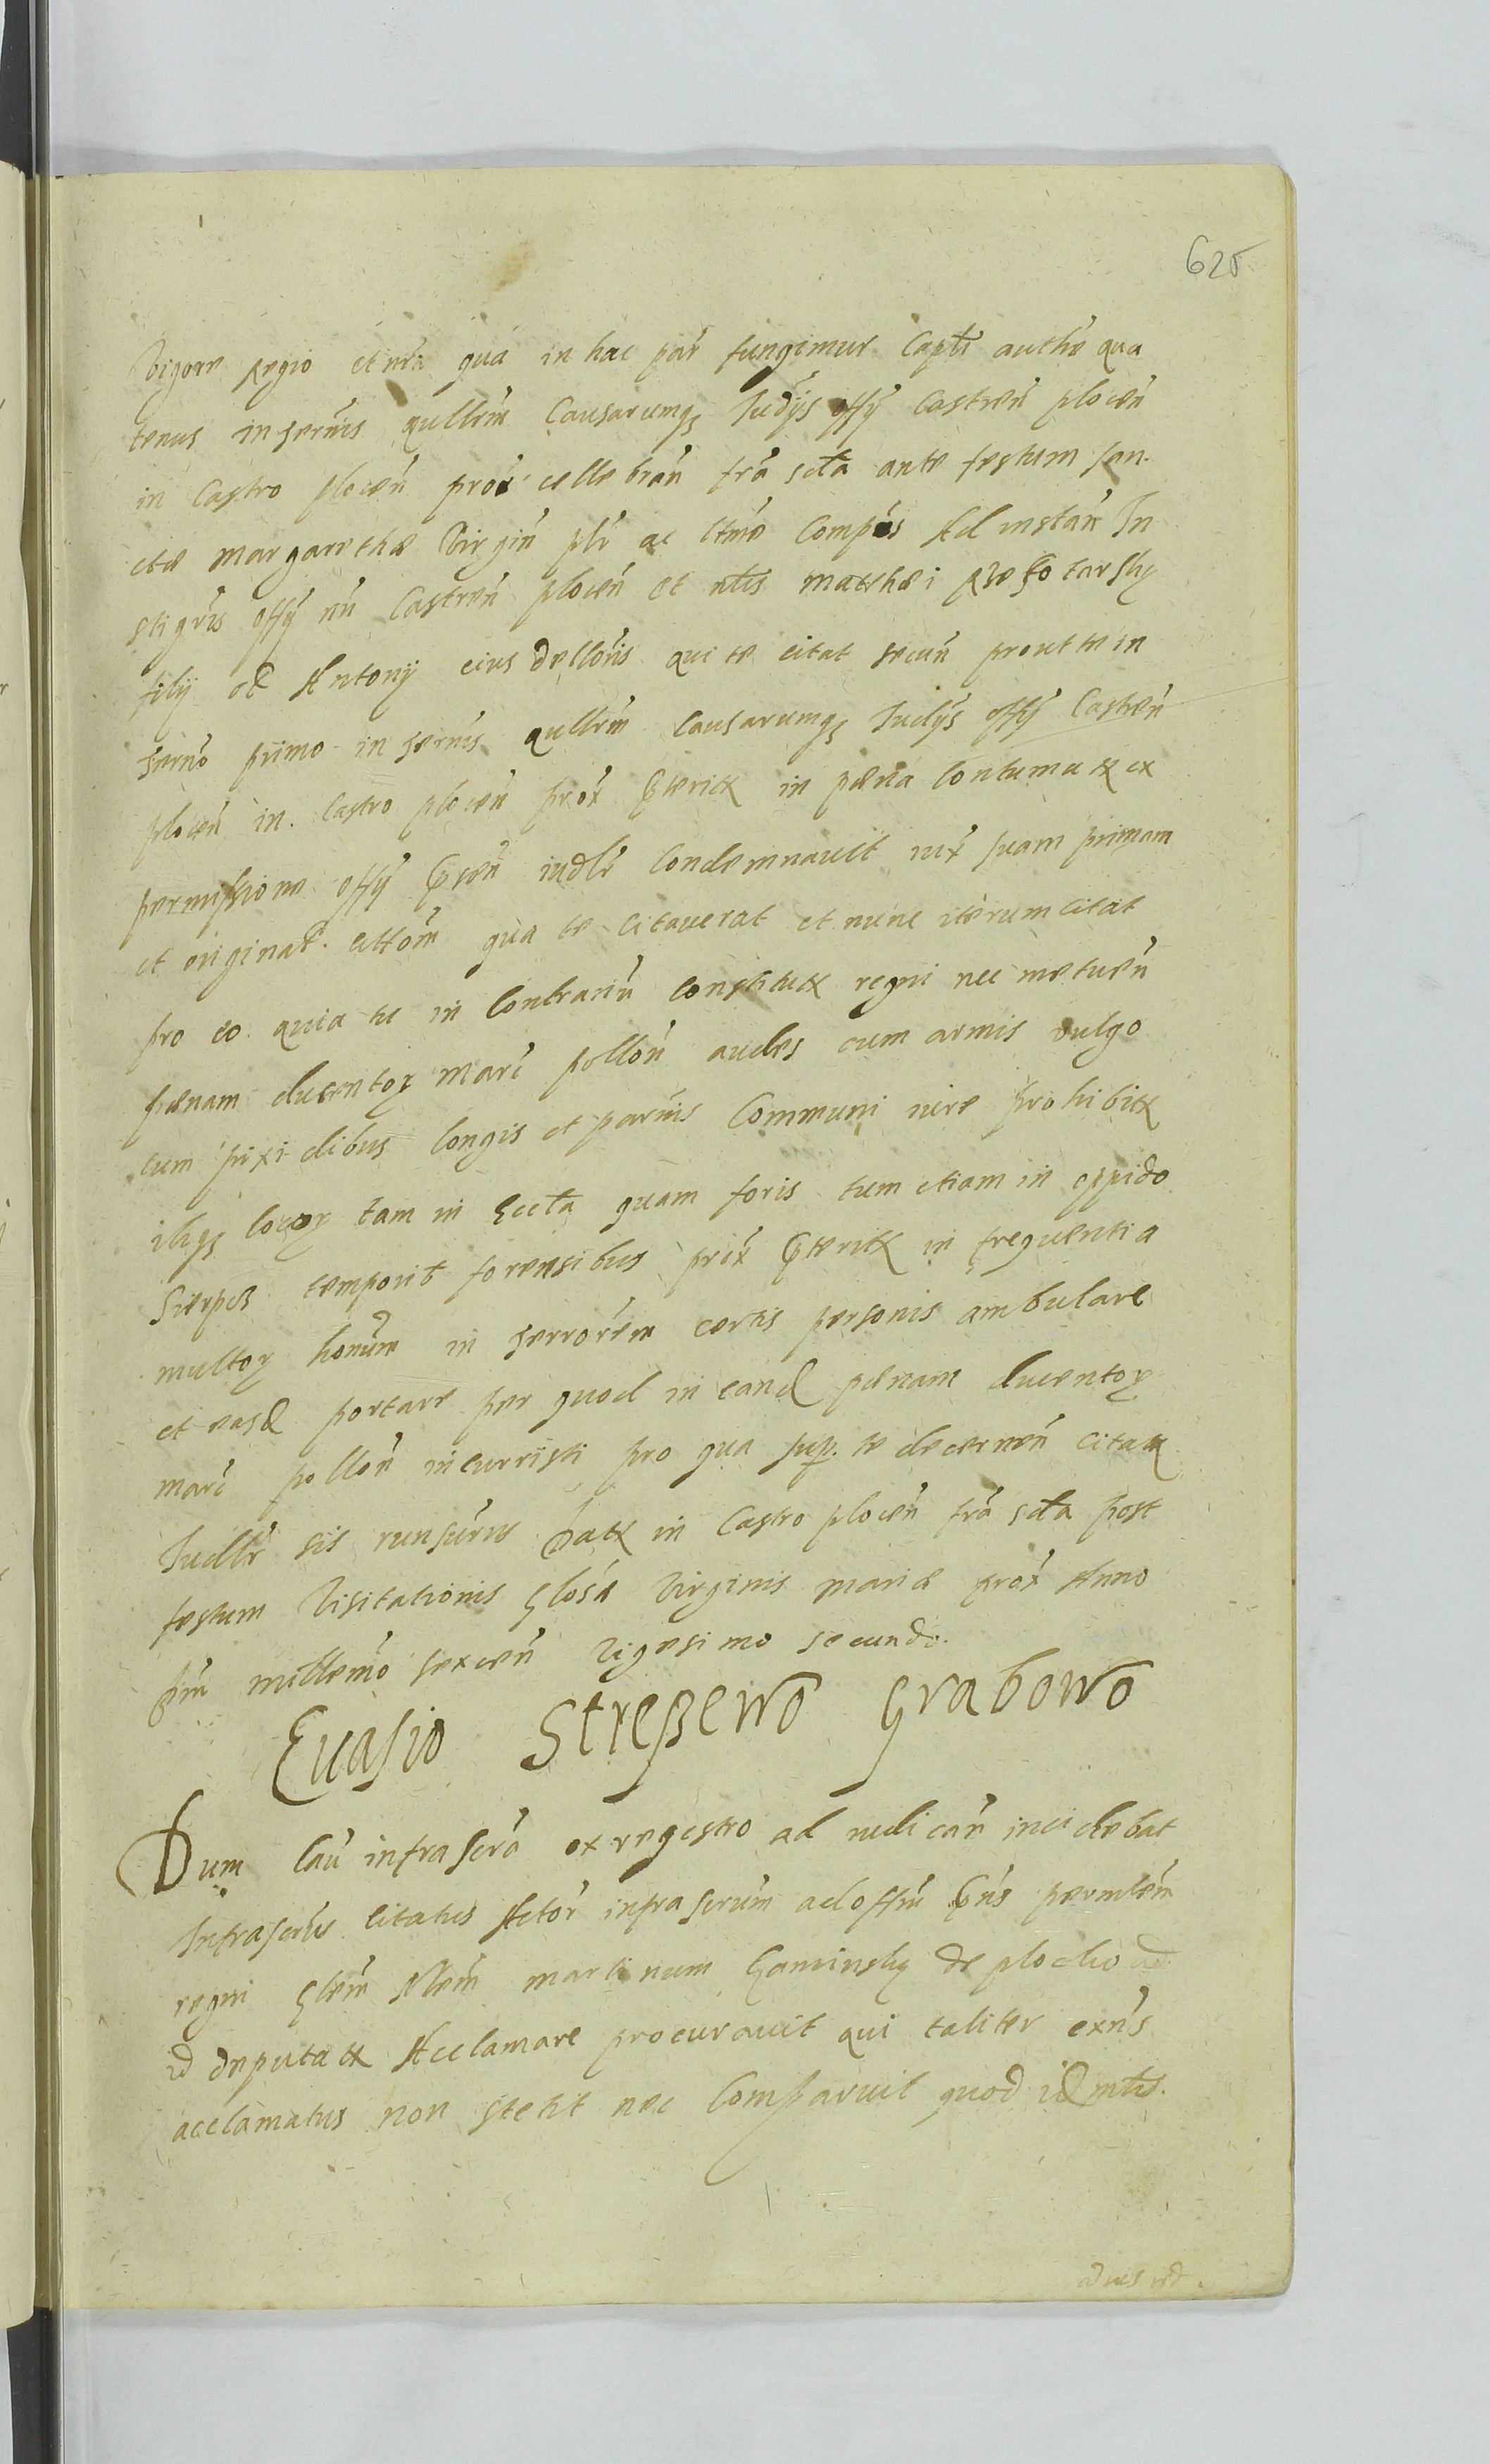 625
Vigore Regio et nrã qua in hac par fungimur Captli authe qua
tenus in termis qullrm Causarumq Judijs offy Castreñ ploceñ
in Castro ploceñ prox cellebrañ fra scta ante festum san-
ctæ Margarethæ Virgiñ plr ac ltme Compas Ad instañ In
stigris offy ñu Castreñ ploceñ et nlis Matthæi
filij ol Antonij eius dellonis qui te citat secuñ prout te in
termo primo in termis qullrm Causarumq Judijs offy Castreñ
ploceñ in Castro ploceñ prox pterit in pæna Contumat ex
permissione offy pseñ iudlr Condemnauit iux suam primam
et original cittom qua te citauerat et nunc iterum citat
pro eo quia tu in Contrariu Constitut regni nec metueñ
pænam ducentor marc polloñ audes cum armis vulgo
cum pixidibus longis et paruis Communi iure prohibit
ibiq locor tam in Eccla quam foris tum etiam in oppido
Sierpcz temporib forensibus prox pterit in frequentia
multor homm in terrorem certis personis ambulare
et easd portare per quod in eand pænam ducentor
marc polloñ incurristi pro qua sup te decerneñ citat
Judlr sis runsurus Dat in Castro ploceñ fra scta post
festum Visitationis Glosa Virginis Mariæ prox Anno
Dni millemo sexceñ vigesimo secundo.
Euasio Strepewo Grabowo
Dum Cau infra scra ex regestro ad iudicañ incidebat
Infrascrus citatus Actor infrascrum ad offiu pns permlem
regni Glem Nlem Martinum Kaminsky de plochowo
ad deputat Acclamare procurauit qui taliter exns
acclamatus non stetit nec Comparuit quod id mtus